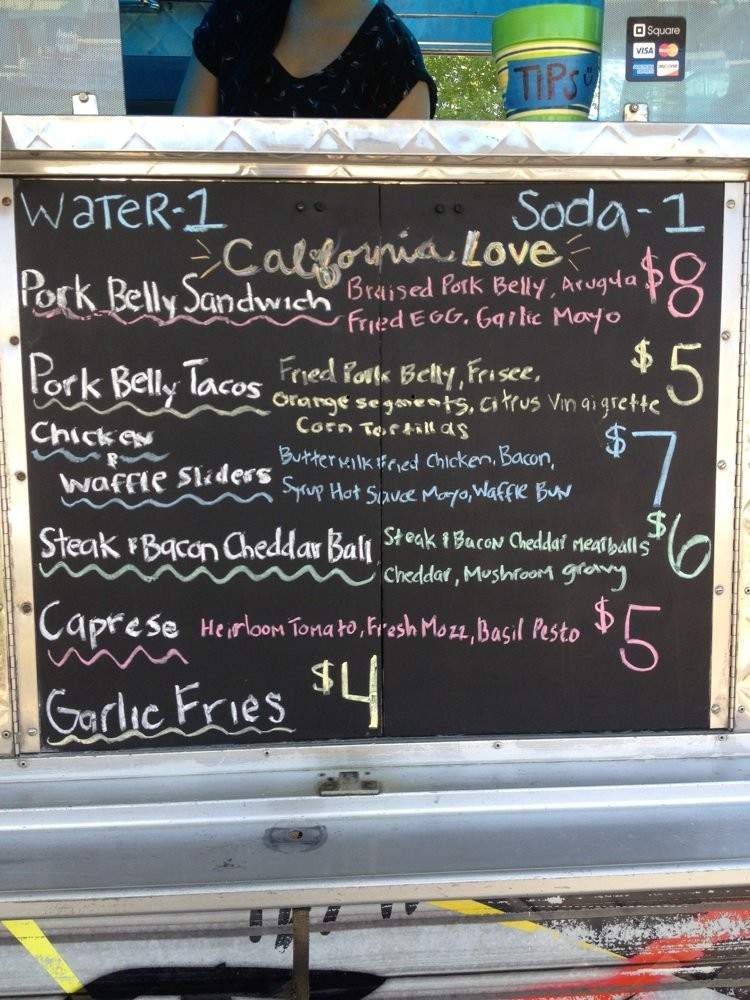 Square
VISA MasterCard
DISCOVER
TIPS
WaTeR-1 Soda-1
California Love
Pork Belly Sandwich Braised Pork Belly, Arugula $8
Fried EGG. Garlic Mayo
Pork Belly Tacos Fried Pork Belly, Frisee, $5
Orange segments, Citrus Vinaigrette
Corn Tortillas
Chicken & Waffle Sliders Buttermilk Fried Chicken, Bacon, $7
Syrup Hot Sauce Mayo, Waffle Bun
Steak & Bacon Cheddar Ball Steak & Bacon Cheddar meatballs $6
Cheddar, Mushroom gravy
Caprese Heirloom Tomato, Fresh Mozz, Basil Pesto $5
Garlic Fries $4